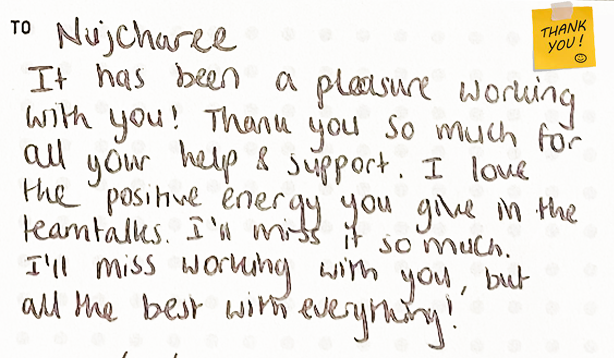 TO Nujcharee
THANK
YOU!
It has been a pleasure working
with you! Thank you so much for
all your help & support. I love
the positive energy you give in the
teamtalks. I'll miss it so much.
I'll miss working with you, but
all the best with everything!